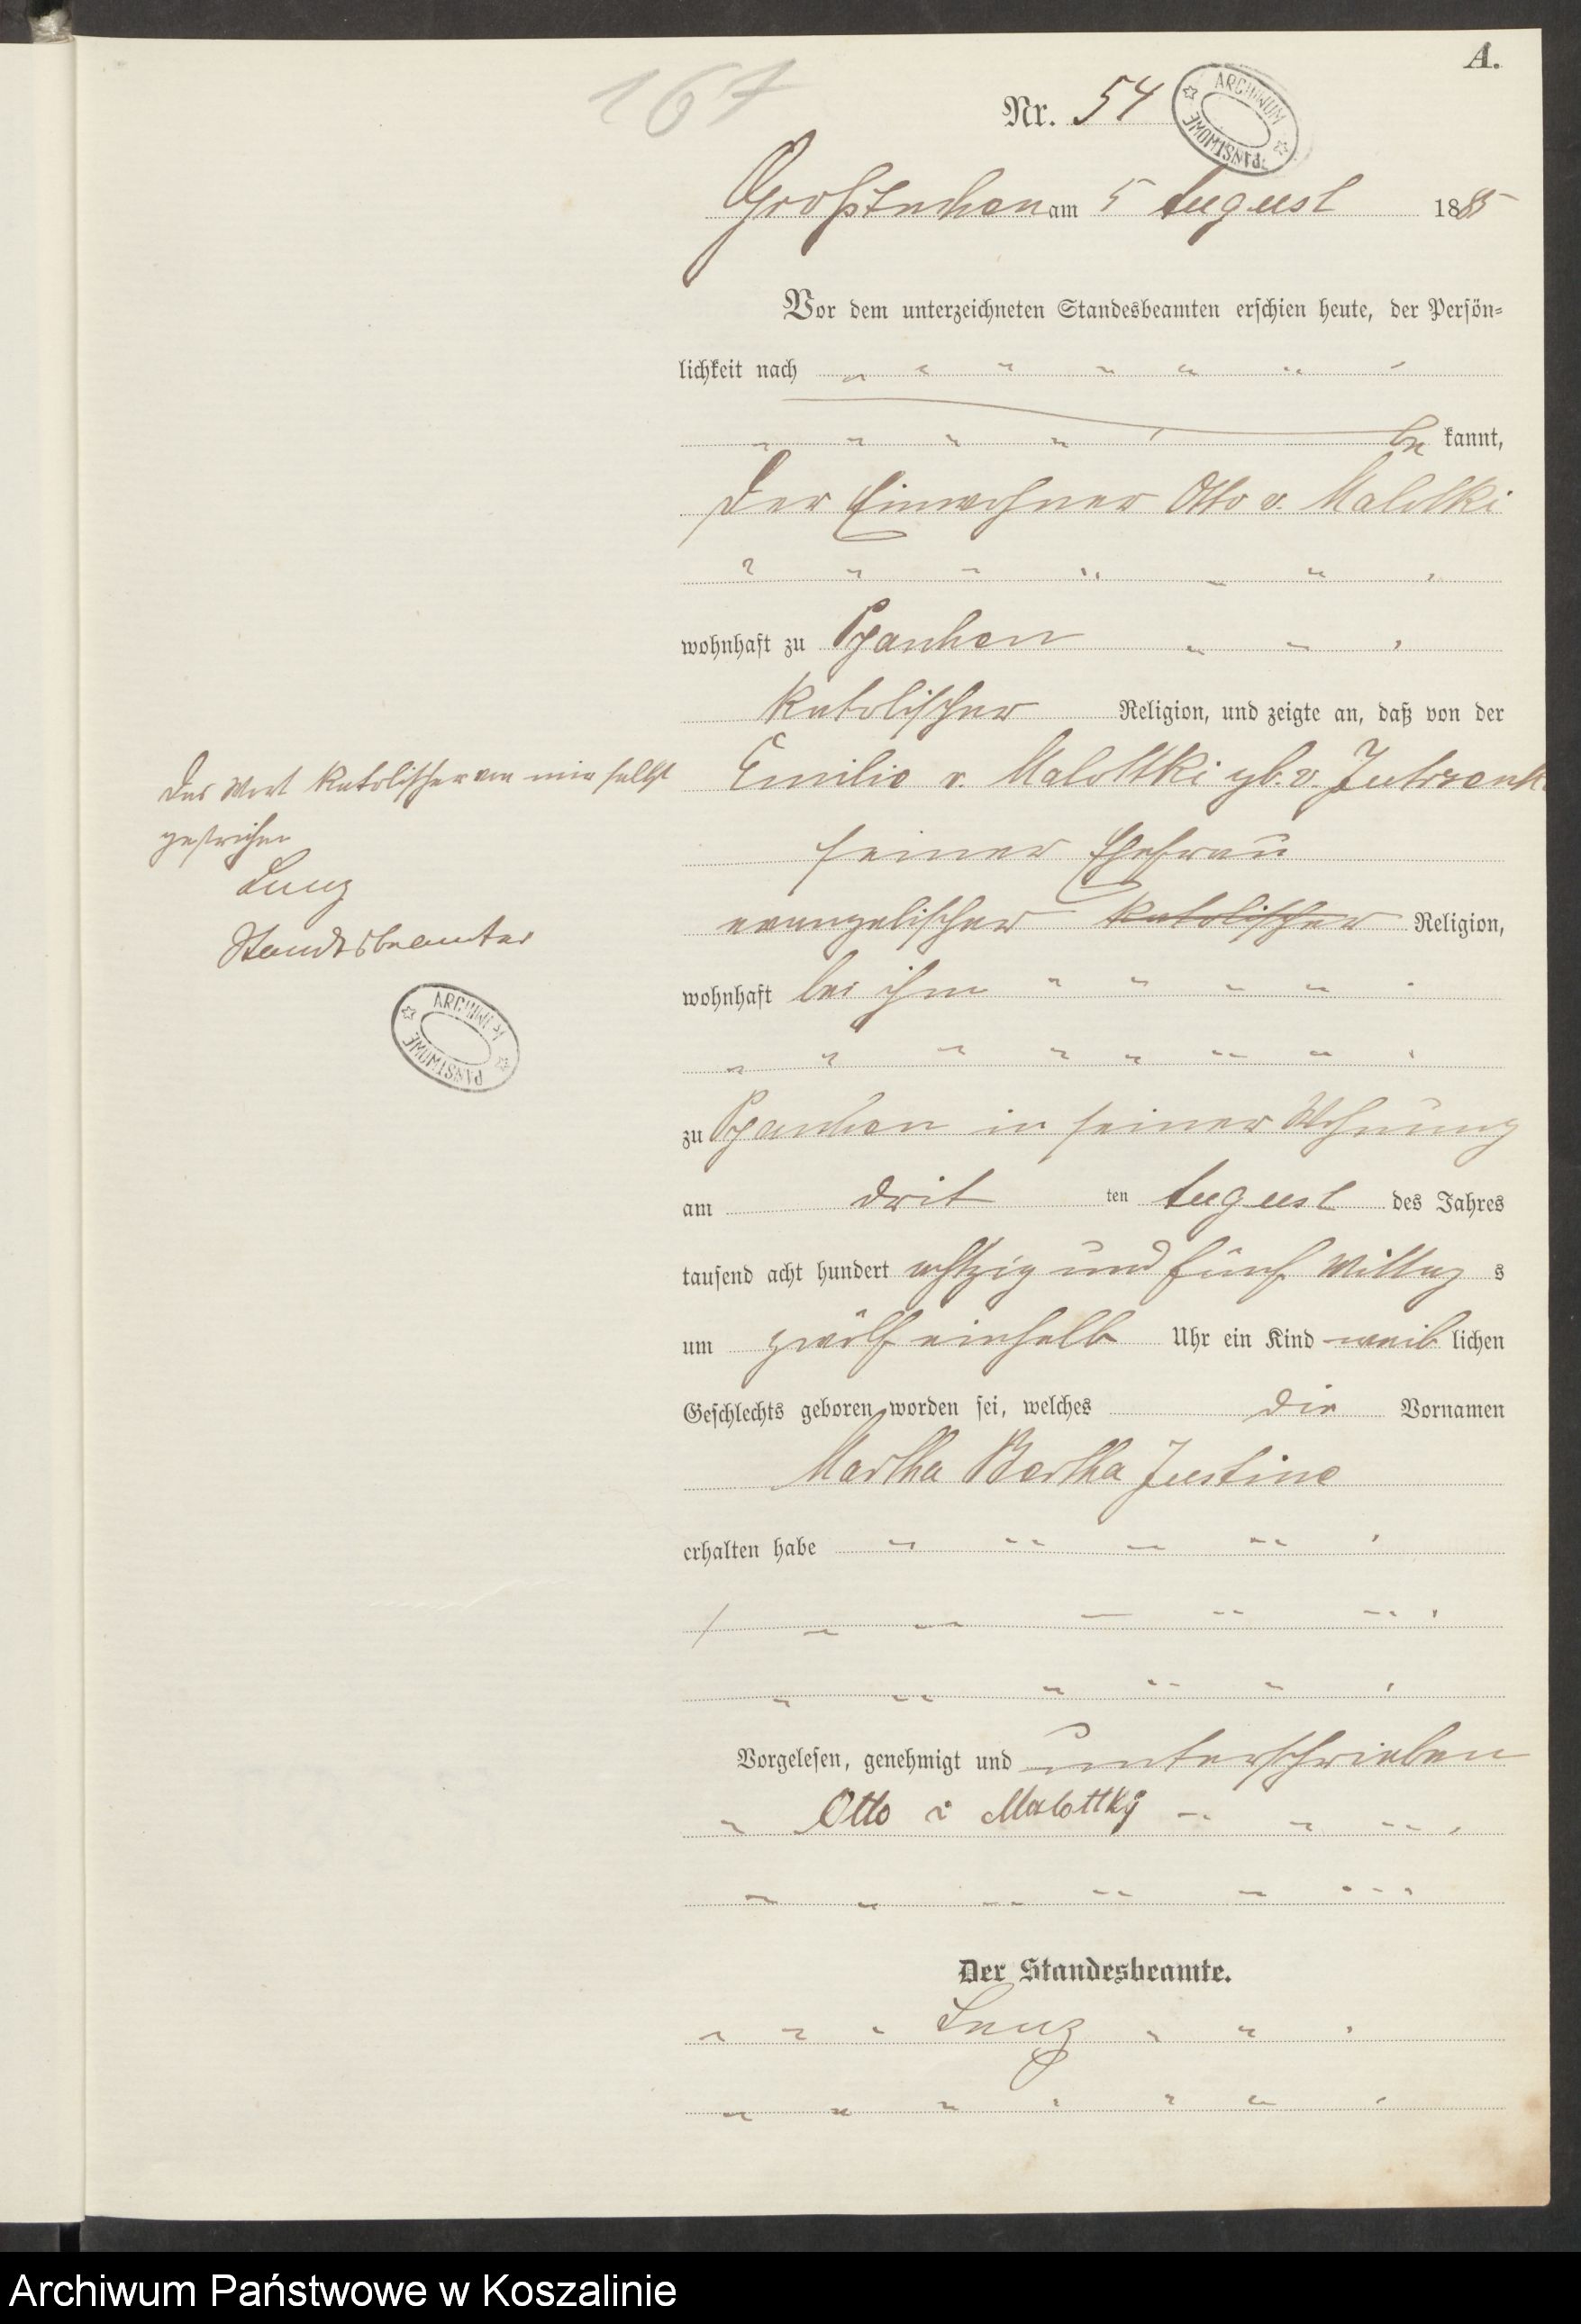 A.
167
Nr. 54
ARCHIWUM PAŃSTWOWE
Großtuchen am 5 August 1885
Vor dem unterzeichneten Standesbeamten erschien heute, der Persön-
lichkeit nach
be kannt,
der Einwohner Otto v. Malottki
wohnhaft zu
katolischer Religion, und zeigte an, daß von der
Emilie v. Malottki gb. v. Jutrzenk
seiner Ehefrau
evangelischer katolischer Religion,
wohnhaft bei ihm
zu in seiner Wohnung
am drit ten August des Jahres
tausend acht hundert achtzig und fünf Mittag s
um zwölf einhalb Uhr ein Kind weib lichen
Geschlechts geboren worden sei, welches die Vornamen
Martha Bertha Justine
erhalten habe
Vorgelesen, genehmigt und unterschrieben
Otto v Malottky
Der Standesbeamte.
Lenz
Das Wort katolischer von mir selbst
gestrichen
Lenz
Standesbeamter
ARCHIWUM PAŃSTWOWE
Archiwum Państwowe w Koszalinie